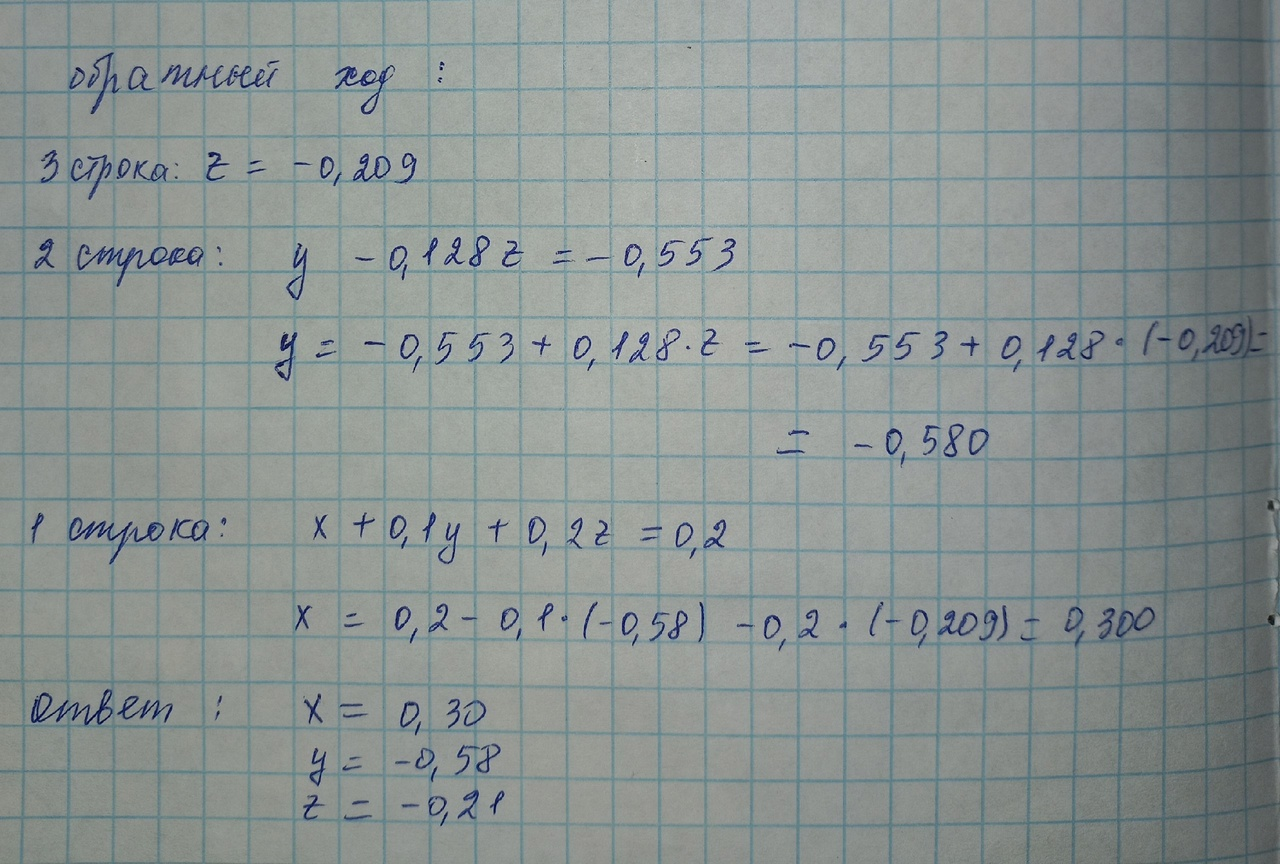 обратный ход :
3 строка: z = -0,209
2 строка: y -0,128z = -0,553
y = -0,553 + 0,128·z = -0,553 + 0,128·(-0,209)=
= -0,580
1 строка: x + 0,1y + 0,2z = 0,2
x = 0,2 - 0,1·(-0,58) -0,2·(-0,209) = 0,300
ответ : x = 0,30
y = -0,58
z = -0,21